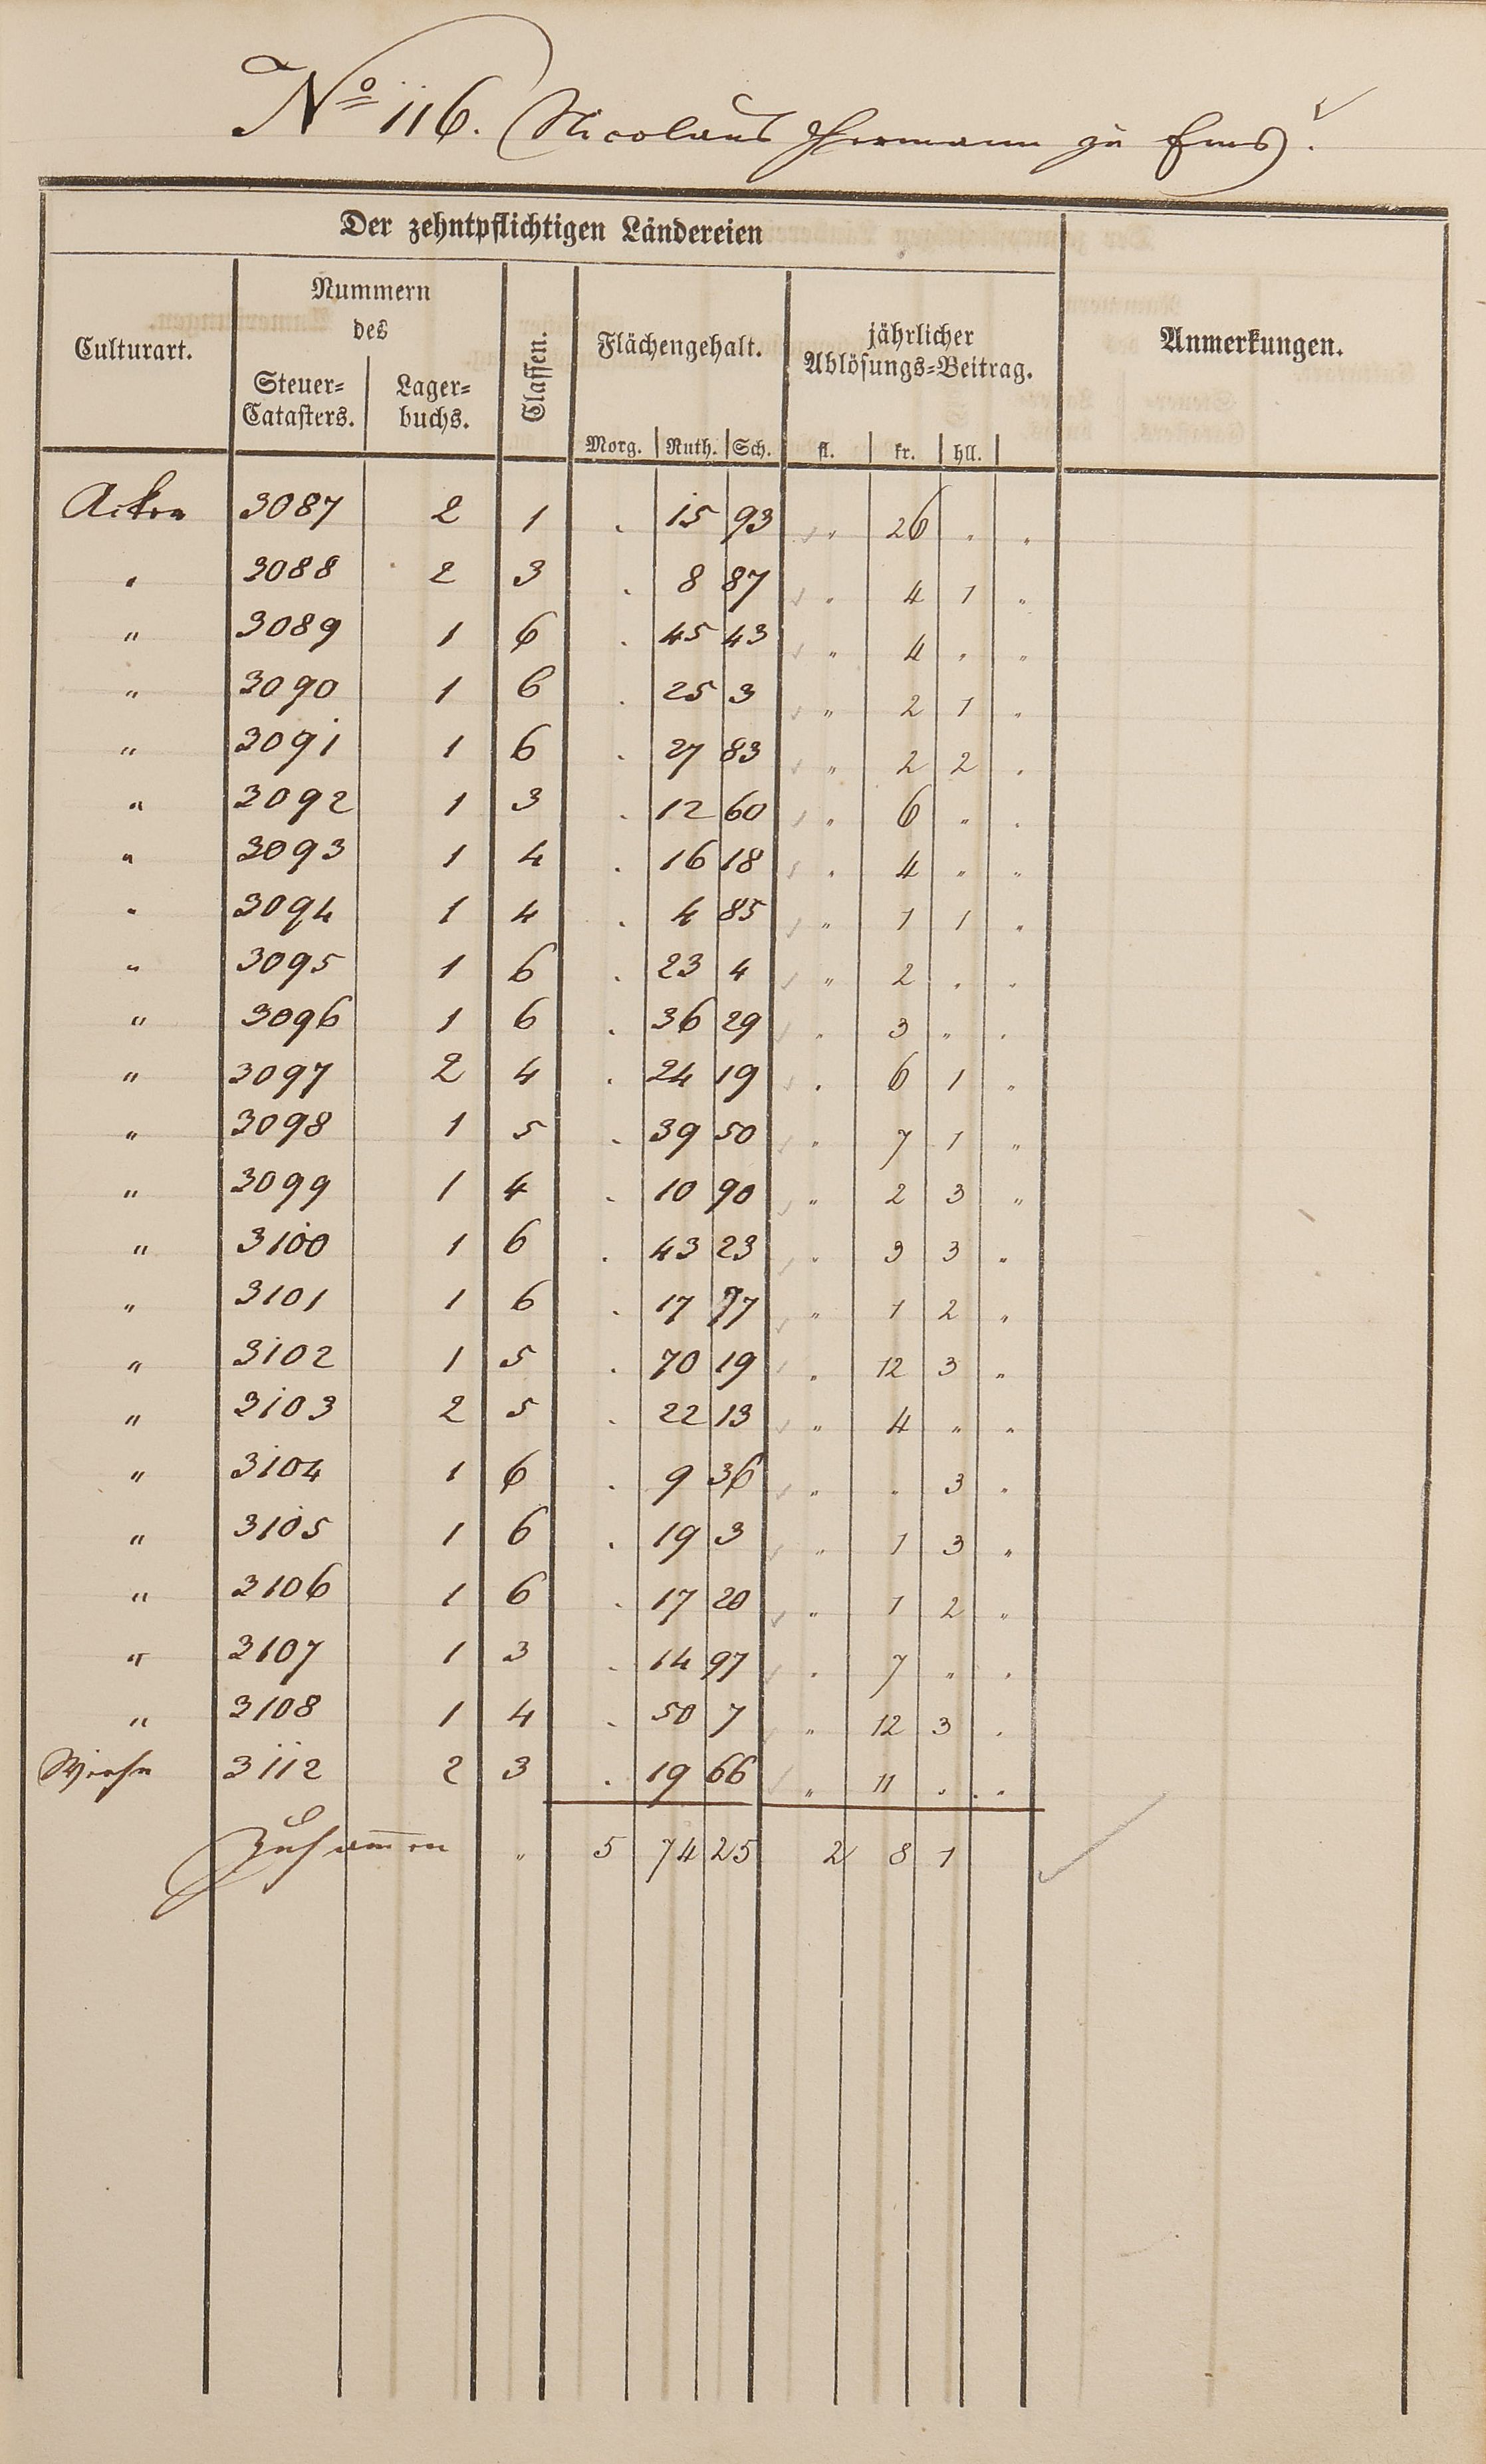 No 116. (Nicolaus Hermann zu Ems).
Der zehntpflichtigen Ländereien
Culturart. Nummern des Steuer-Catasters. Lager-buchs. Classen. Flächengehalt. Morg. Ruth. Sch. jährlicher Ablösungs-Beitrag. fl. kr. hll. Anmerkungen.
Acker 3087 2 1 . 15 93 " 26 " "
" 3088 2 3 . 8 87 " 4 1 "
" 3089 1 6 . 45 43 " 4 " "
" 3090 1 6 . 25 3 " 2 1 "
" 3091 1 6 . 27 83 " 2 2 "
" 3092 1 3 . 12 60 " 6 " "
" 3093 1 4 . 16 18 " 4 " "
" 3094 1 4 . 4 85 " 1 1 "
" 3095 1 6 . 23 4 " 2 " "
" 3096 1 6 . 36 29 " 3 " "
" 3097 2 4 . 24 19 " 6 1 "
" 3098 1 5 . 39 50 " 7 1 "
" 3099 1 4 . 10 90 " 2 3 "
" 3100 1 6 . 43 23 " 3 3 "
" 3101 1 6 . 17 77 " 1 2 "
" 3102 1 5 . 70 19 " 12 3 "
" 3103 2 5 . 22 13 " 4 " "
" 3104 1 6 . 9 36 " " 3 "
" 3105 1 6 . 19 3 " 1 3 "
" 3106 1 6 . 17 20 " 1 2 "
" 3107 1 3 . 14 97 " 7 " "
" 3108 1 4 . 50 7 " 12 3 "
Wiese 3112 2 3 . 19 66 " 11 " "
Zusam̅en " 5 74 25 2 8 1